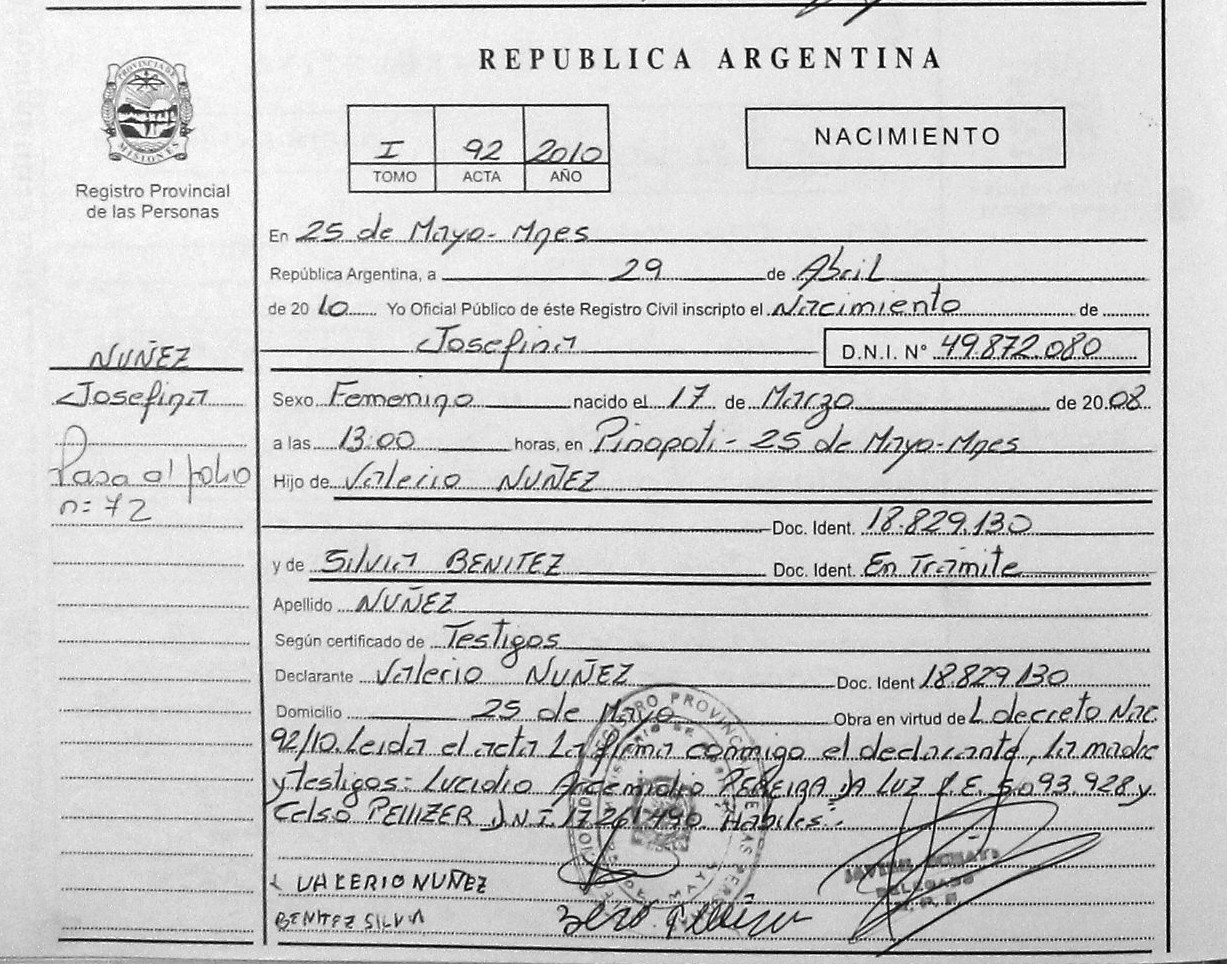 REPUBLICA ARGENTINA
PROVINCIA DE
MISIONES
Registro Provincial
de las Personas
I 92 2010
TOMO ACTA AÑO
NACIMIENTO
En 25 de Mayo- Mnes
República Argentina, a 29 de Abril
de 20 10 Yo Oficial Público de éste Registro Civil inscripto el Nacimiento de
Josefina D.N.I. N° 49.872.080
NUÑEZ
Josefina
Pasa al folio
n: 72
Sexo Femenino nacido el 17 de Marzo de 20 08
a las 13:00 horas, en Pinopoti - 25 de Mayo-Mnes
Hijo de Valerio NUÑEZ
Doc. Ident. 18.829.130
y de SILVIA BENITEZ Doc. Ident. En Trámite
Apellido NUÑEZ
Según certificado de Testigos
Declarante Valerio NUÑEZ Doc. Ident 18.829.130
Domicilio 25 de Mayo Obra en virtud de L decreto Nac.
92/10. Leida el acta La firma conmigo el declarante, La madre
y testigos: Lucidio Arcemidio PEREIRA DA LUZ L.E. 5.093.928 y
Celso PELLIZER D.N.I. 17.261.490 Habiles:.
VALERIO NUÑEZ
BENITEZ SILVIA
DELEGADO